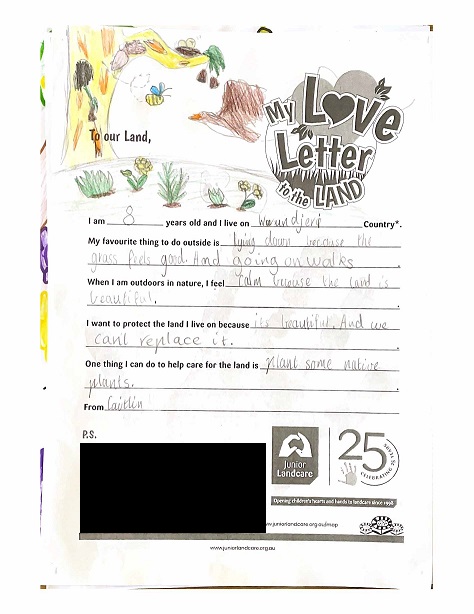 My Love
Letter
to the LAND
To our Land,
I am 8 years old and I live on Wurundjeri Country*.
My favourite thing to do outside is lying down because the
grass feels good. And going on walks.
When I am outdoors in nature, I feel calm because the land is
beautiful.
I want to protect the land I live on because its beautiful. And we
cant replace it.
One thing I can do to help care for the land is plant some native
plants.
From Caitlin
P.S.
Junior
Landcare
25
CELEBRATING 25 YEARS
Opening children's hearts and hands to landcare since 1998
w.juniorlandcare.org.au/map
www.juniorlandcare.org.au